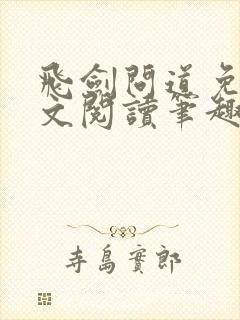 飛劍問道免
文閱讀筆趣
寺島實郎